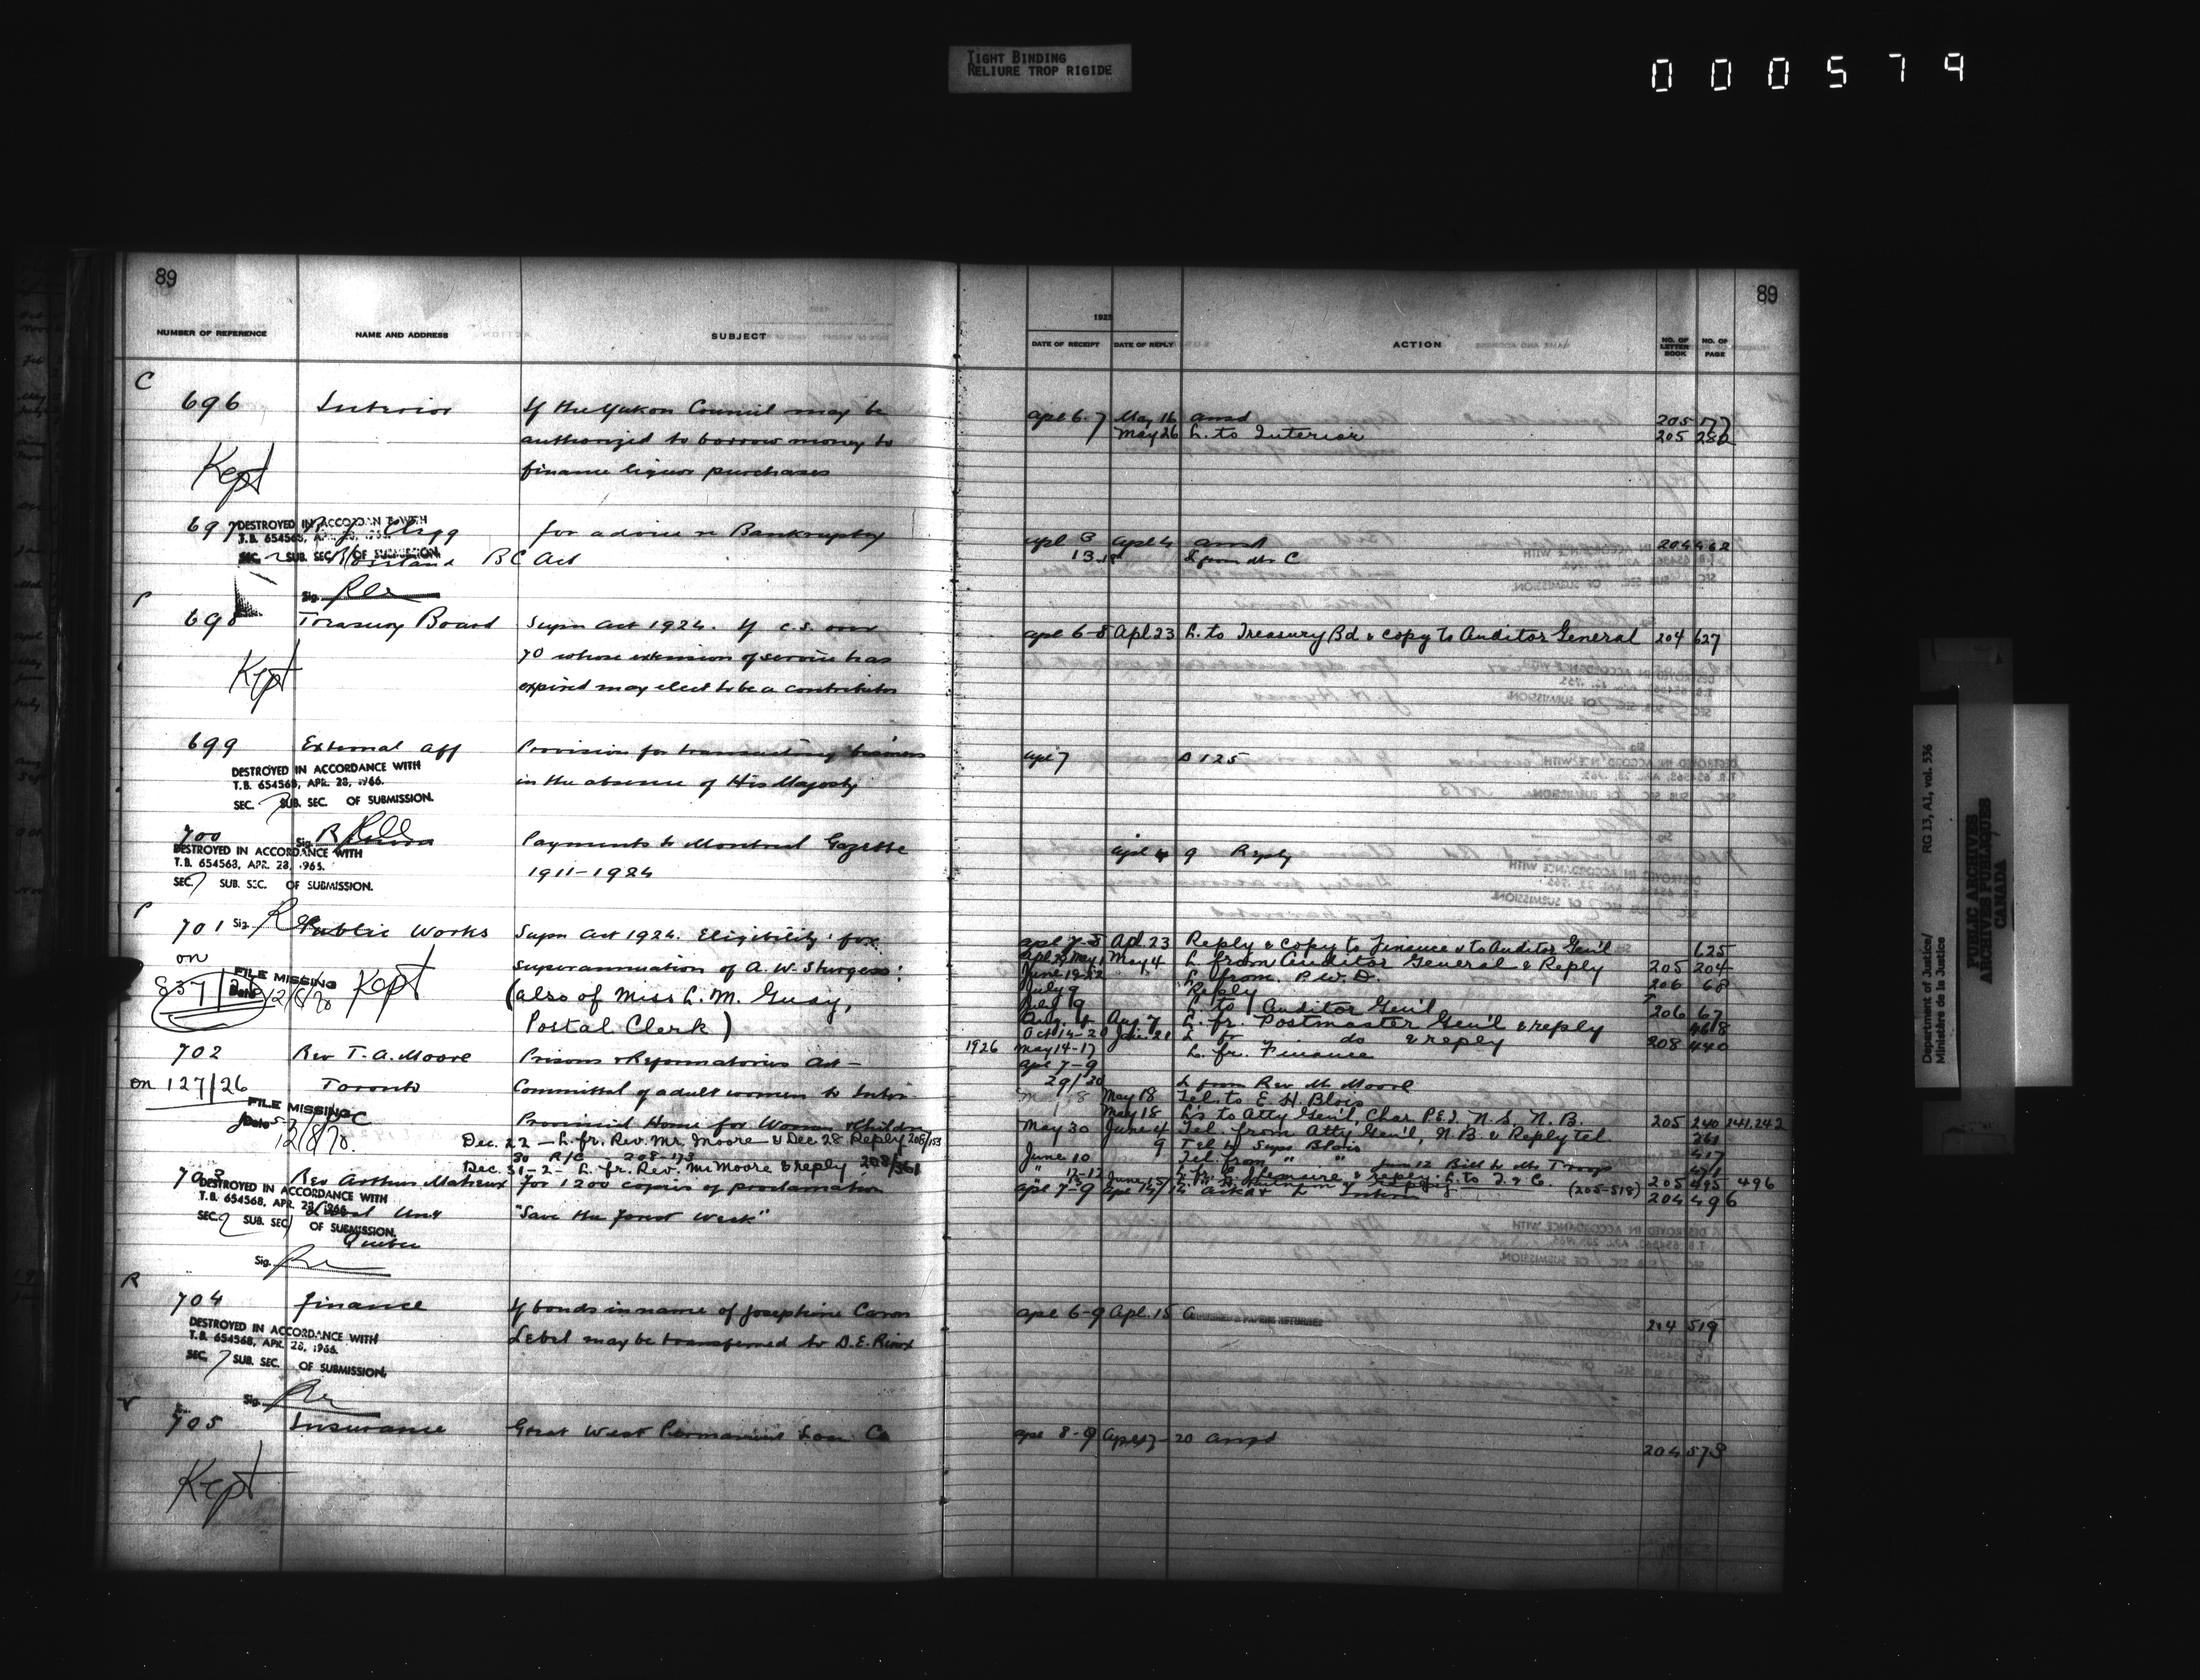 TIGHT BINDING
RELIURE TROP RIGIDE
000579
89
89
NUMBER OF REFERENCE NAME AND ADDRESS SUBJECT
1925
DATE OF RECEIPT DATE OF REPLY ACTION NO. OF LETTER BOOK NO. OF PAGE
C
696 Interior If the Yukon Council may be
authorized to borrow money to
finance liquor purchases
Kept
apl 6-7 May 16 ansd 205 177
May 26 L. to Interior 205 282
697 for advice re Bankruptcy
BC Act
DESTROYED IN ACCORDANCE WITH
T.B. 654568,
SEC. SUB. SEC. OF SUBMISSION.
Sig.
apl 3 apl 4 ansd 204 462
13-18 L from Mr C
698 Treasury Board Supn Act 1924. If C.S. over
70 whose extension of service has
expired may elect to be a contributor
Kept
apl 6-8 Apl. 23 L. to Treasury Bd. & copy to Auditor General 204 627
699 External Aff Provision for transacting business
in the absence of His Majesty
DESTROYED IN ACCORDANCE WITH
T.B. 654568, APR. 28, 1966.
SEC. 7 SUB. SEC. OF SUBMISSION.
Sig.
apl 7 D 125
700 Payments to Montreal Gazette
1911-1924
DESTROYED IN ACCORDANCE WITH
T.B. 654568, APR. 28, 1966.
SEC. 7 SUB. SEC. OF SUBMISSION.
Sig.
apl 4 9 Reply
701 Public Works Supn Act 1924. Eligibility for
on superannuation of A. W. Sturgess:
837/25 (also of Miss L. M. Guay,
Postal Clerk)
FILE MISSING
Date 12/8/70 Kept
apl 7-8 Apl. 23 Reply & copy to Finance & to Auditor Gen'l 625
May 4 L. from Auditor General & Reply 205 204
L. from P.W.D. 206 68
July 9 Reply
L. to Auditor Gen'l 206 67
Aug 7 L. fr. Postmaster Gen'l & reply 468
Oct 14-20 Jan. 21 L. fr. do & reply 208 440
1926 May 14-17 L. fr. Finance
702 Rev T. A. Moore Prisons & Reformatories Act -
on 127/26 Toronto Committal of adult women to Inter
Provincial Home for Women & Childn
FILE MISSING
Date 12/8/70.
Dec. 22 - L. fr. Rev. Mr. Moore & Dec 28 Reply 208/153
30 R/C 208-173
Dec. 31-2- L. fr. Rev. Mr Moore & reply 208/361
apl 7-9
29/30 L from Rev Mr Moore
May 18 Tel. to E. H. Blois
May 18 L's to Atty Gen'l, Char. P.E.I., N.S., N.B. 205 240 241, 242
May 30 June 4 Tel. from Atty Gen'l, N.B. & Reply tel 361
9 Tel to Supt Blois 417
June 10 Tel. from " "
205 495 496
703 Rev Arthur for 1200 copies of proclamation
"Save the forest week"
Quebec
DESTROYED IN ACCORDANCE WITH
T.B. 654568, APR. 28, 1966.
SEC. 2 SUB. SEC. OF SUBMISSION.
Sig.
apl 7-9 (205-518) 204 496
R
704 Finance If bonds in name of Josephine Caron
Lebel may be transferred to D. E. Rioux
DESTROYED IN ACCORDANCE WITH
T.B. 654568, APR. 28, 1966.
SEC. 7 SUB. SEC. OF SUBMISSION.
Sig.
apl 6-9 Apl. 15 & PAPERS RETURNED 204 519
705 Insurance Great West Permanent Loan Co
Kept
apl 8-9 20 ansd 204 573
Department of Justice/
Ministère de la Justice
RG 13, A1, vol. 536
PUBLIC ARCHIVES
ARCHIVES PUBLIQUES
CANADA